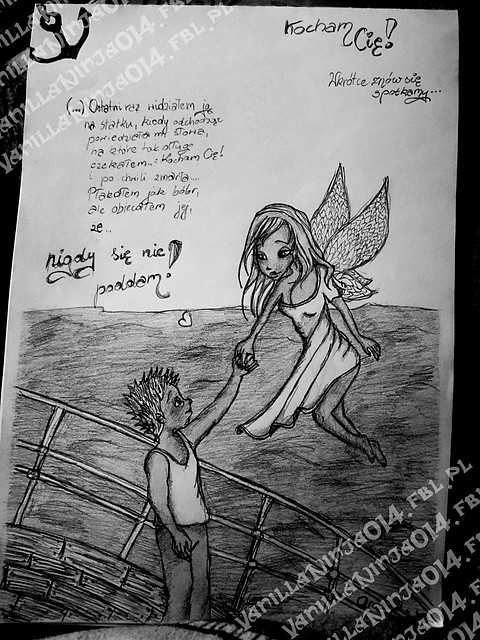 Kocham Cię!
Wkrótce znów się
spotkamy...
(...) Ostatni raz widziałem ją
na statku, kiedy odchodząc
powiedziała mi słowa,
na które tak długo
czekałem...: Kocham Cię!
i po chwili zmarła...
Płakałem jak bóbr,
ale obiecałem jej,
że...
nigdy się nie
poddam!
VanillaNinja014.FBL.PL
VanillaNinja014.FBL.PL
VanillaNinja014.FBL.PL
VanillaNinja014.FBL.PL
VanillaNinja014.FBL.PL